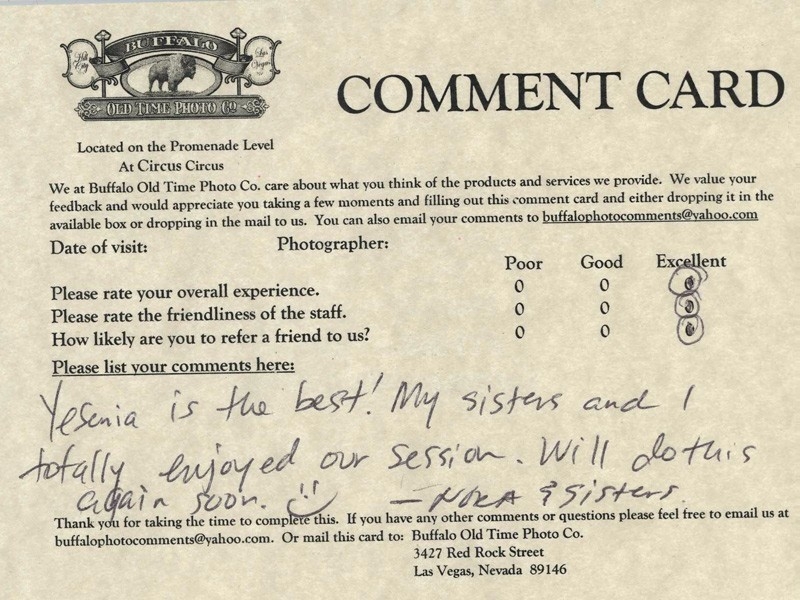 BUFFALO
Las Vegas
OLD TIME PHOTO CO
COMMENT CARD
Located on the Promenade Level
At Circus Circus
We at Buffalo Old Time Photo Co. care about what you think of the products and services we provide. We value your
feedback and would appreciate you taking a few moments and filling out this comment card and either dropping it in the
available box or dropping in the mail to us. You can also email your comments to buffalophotocomments@yahoo.com
Date of visit: Photographer:
Poor Good Excellent
Please rate your overall experience. 0 0 0
Please rate the friendliness of the staff. 0 0 0
How likely are you to refer a friend to us? 0 0 0
Please list your comments here:
Yesenia is the best! My sisters and I
totally enjoyed our session. Will do this
again soon. — NORA & Sisters.
Thank you for taking the time to complete this. If you have any other comments or questions please feel free to email us at
buffalophotocomments@yahoo.com. Or mail this card to: Buffalo Old Time Photo Co.
3427 Red Rock Street
Las Vegas, Nevada 89146